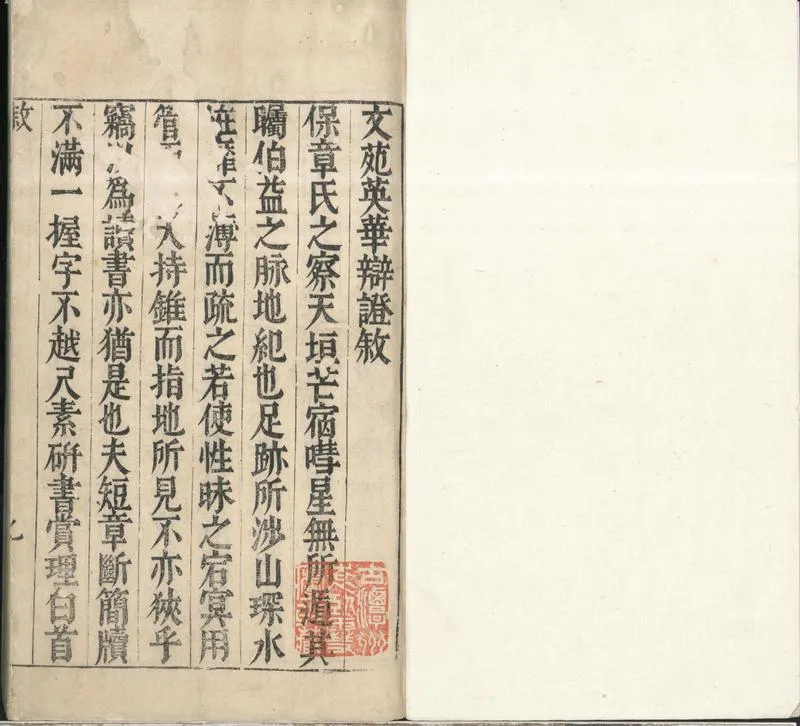 文苑英華辯證敘
保章氏之察天垣芒宿嘒星無所遁其
矚伯益之脉地紀也足跡所渉山琛水
不溥而疏之若使性昧之宕冥用
管 人持錐而指地所見不亦狹乎
竊 爲讀書亦猶是也夫短章斷簡牘
不滿一握字不越尺素硏書賞理白首
敘